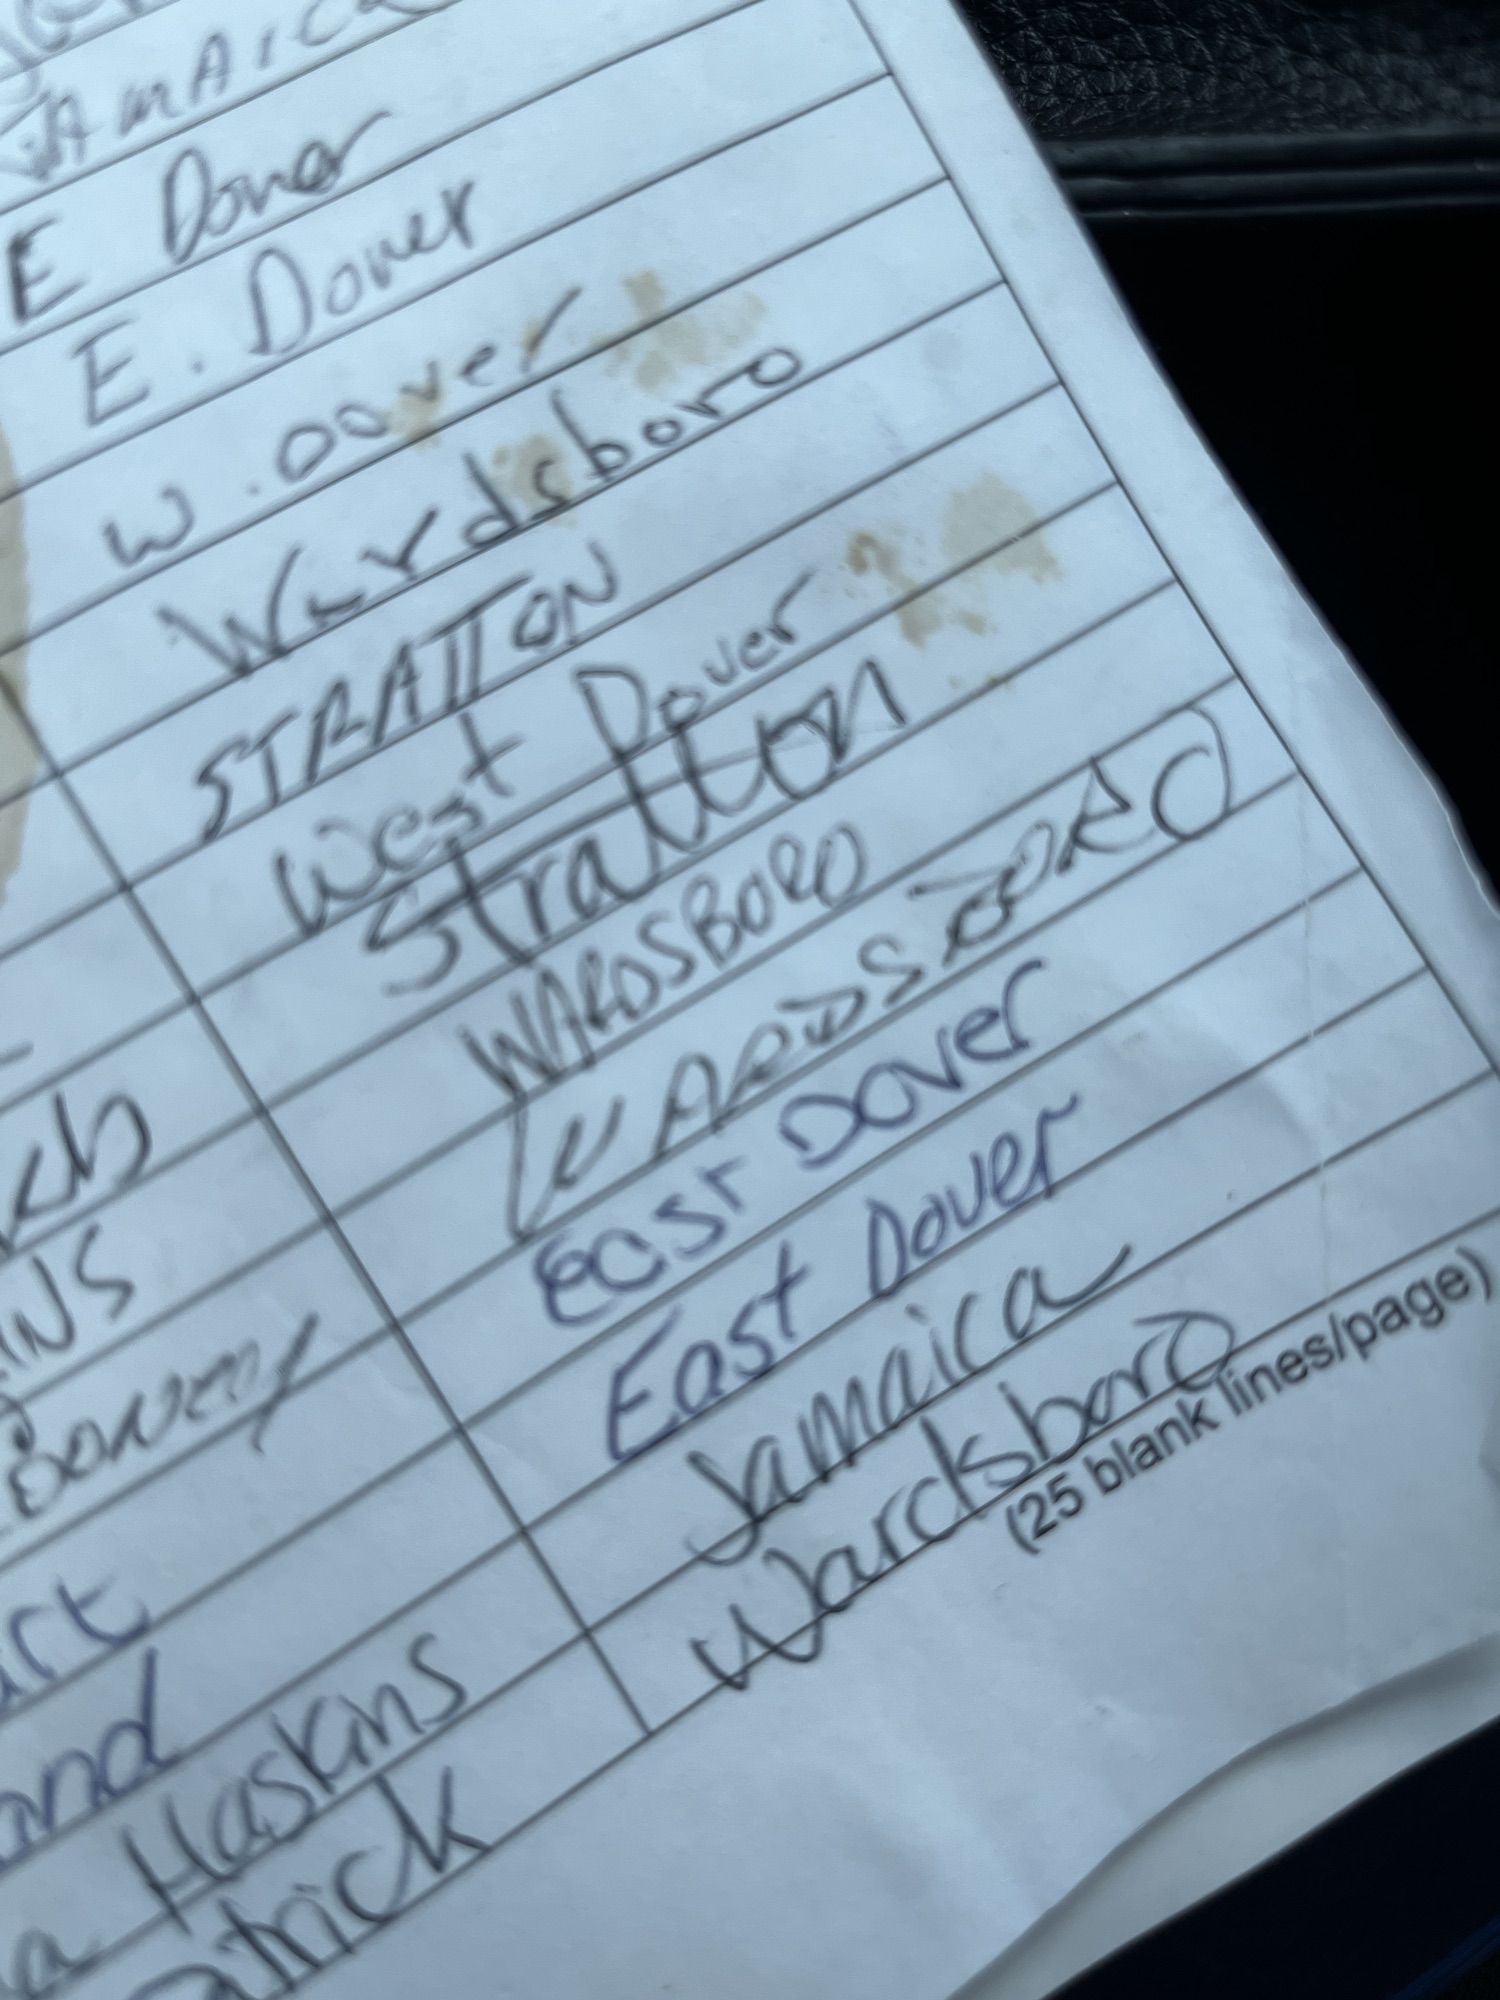 JAMAICA
E Dover
E. Dover
W. Dover
Wardsboro
STRATTON
West Dover
Stratton
WARDSBORO
WARDSBORO
East Dover
East Dover
Jamaica
Haskins Wardsboro
(25 blank lines/page)